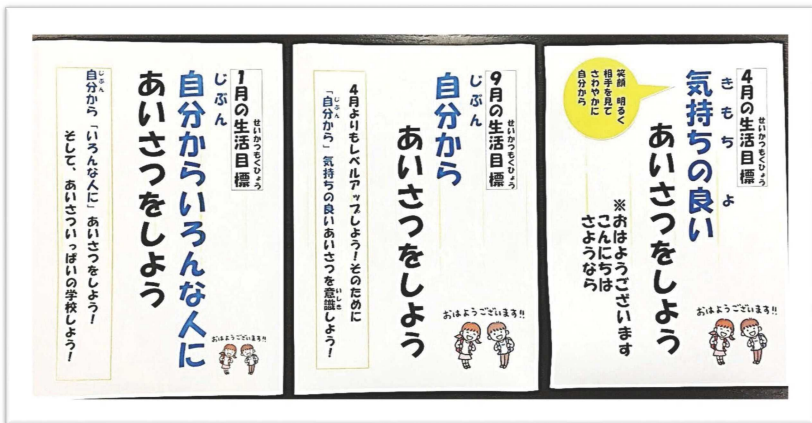 4月の生活目標
せいかつもくひょう
気持ちの良い
きもち よ
あいさつをしよう
笑顔 明るく
相手を見て
さわやかに
自分から
※おはようございます
こんにちは
さようなら
おはようございます!!
9月の生活目標
せいかつもくひょう
自分から
じぶん
あいさつをしよう
4月よりもレベルアップしよう!そのために
「自分から」気持ちの良いあいさつを意識しよう!
じぶん いしき
おはようございます!!
1月の生活目標
せいかつもくひょう
自分からいろんな人に
じぶん
あいさつをしよう
自分から「いろんな人に」あいさつをしよう!
じぶん
そして、あいさついっぱいの学校しよう!
おはようございます!!